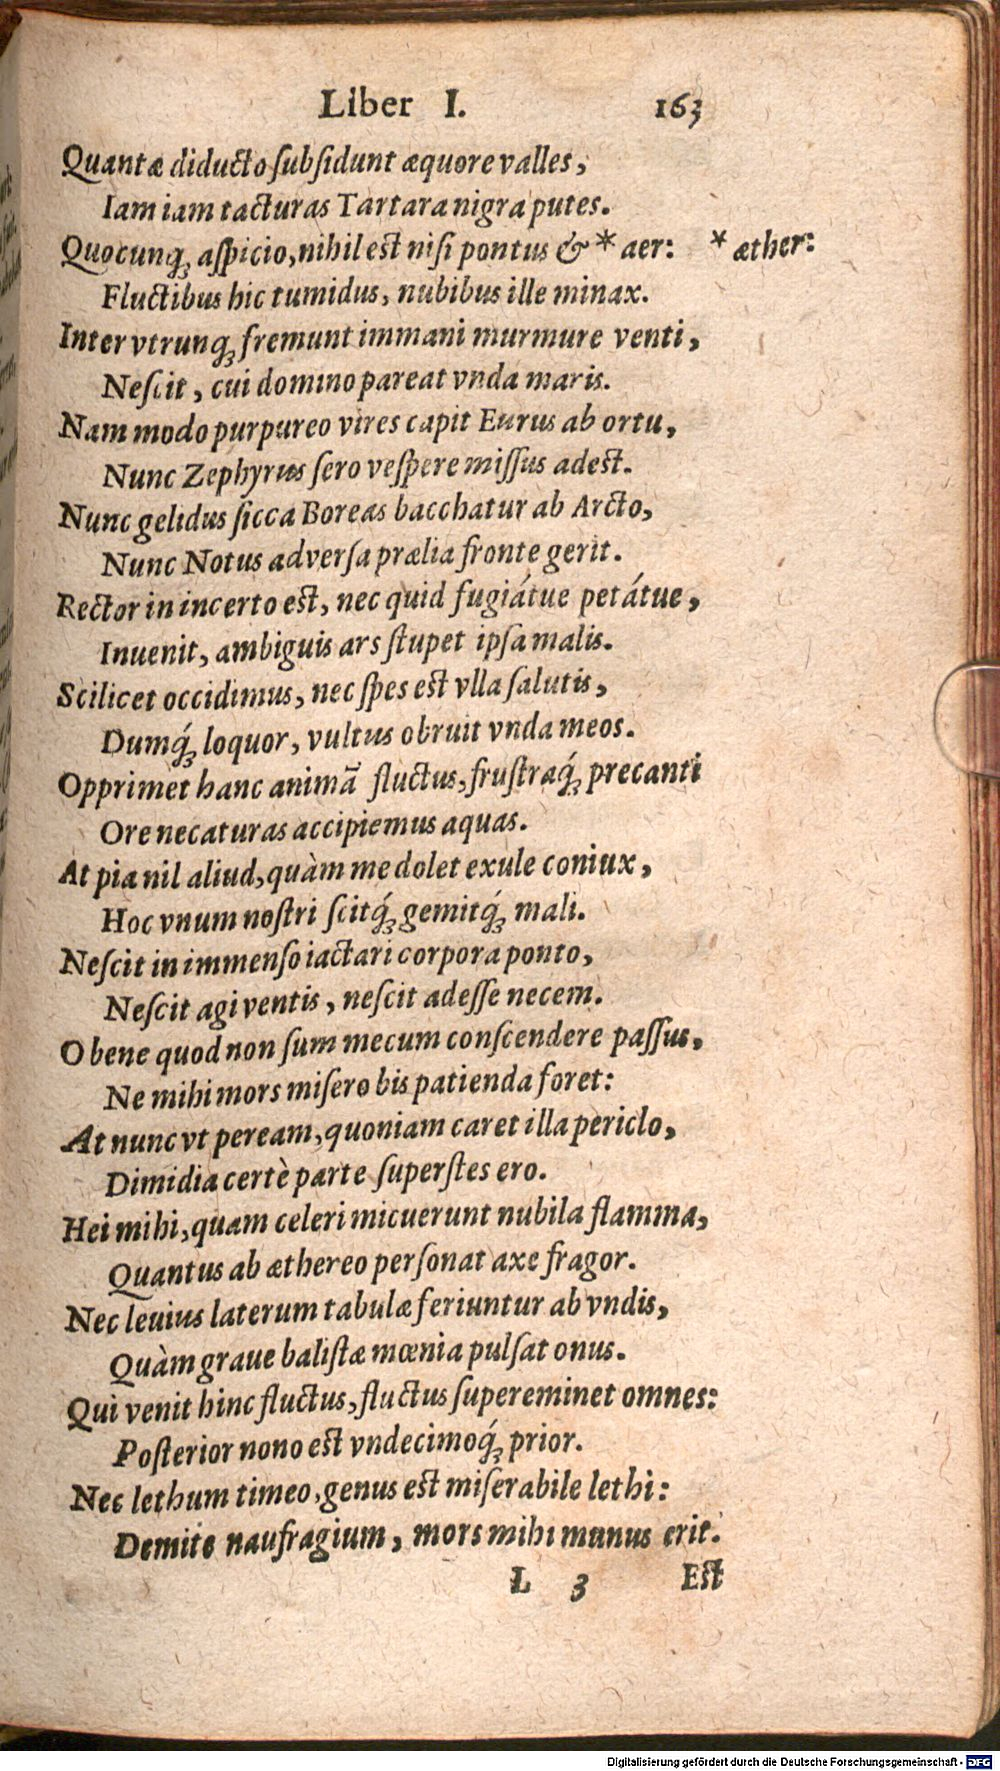 Liber I. 163
Quantæ diducto ſubſidunt æquore valles,
Iam iam tacturas Tartara nigra putes.
Quocunqꝫ aſpicio, nihil est niſi pontus & * aer: * æther:
Fluctibus hic tumidus, nubibus ille minax.
Inter vtrunqꝫ fremunt immani murmure venti,
Neſcit, cui domino pareat vnda maris.
Nam modo purpureo vires capit Eurus ab ortu,
Nunc Zephyrus ſero veſpere miſſus adest.
Nunc gelidus ſicca Boreas bacchatur ab Arcto,
Nunc Notus adverſa prælia fronte gerit.
Rector in incerto est, nec quid fugiátue petátue,
Inuenit, ambiguis ars ſtupet ipſa malis.
Scilicet occidimus, nec ſpes est vlla ſalutis,
Dumq́ꝫ loquor, vultus obruit vnda meos.
Opprimet hanc animã fluctus, fruſtraq́ꝫ precanti
Ore necaturas accipiemus aquas.
At pia nil aliud, quàm me dolet exule coniux,
Hoc vnum noſtri ſcitq́ꝫ gemitq́ꝫ mali.
Neſcit in immenſo iactari corpora ponto,
Neſcit agi ventis, neſcit adeſſe necem.
O bene quod non ſum mecum conſcendere paſſus,
Ne mihi mors miſero bis patienda foret:
At nunc vt peream, quoniam caret illa periclo,
Dimidia certè parte ſuperſtes ero.
Hei mihi, quam celeri micuerunt nubila flamma,
Quantus ab æthereo perſonat axe fragor.
Nec leuius laterum tabulæ feriuntur ab vndis,
Quàm graue baliſtæ mœnia pulſat onus.
Qui venit hinc fluctus, fluctus ſupereminet omnes:
Poſterior nono est vndecimoq́ꝫ prior.
Nec lethum timeo, genus est miſerabile lethi:
Demite naufragium, mors mihi munus erit.
L 3 Est
Digitalisierung gefördert durch die Deutsche Forschungsgemeinschaft - DFG